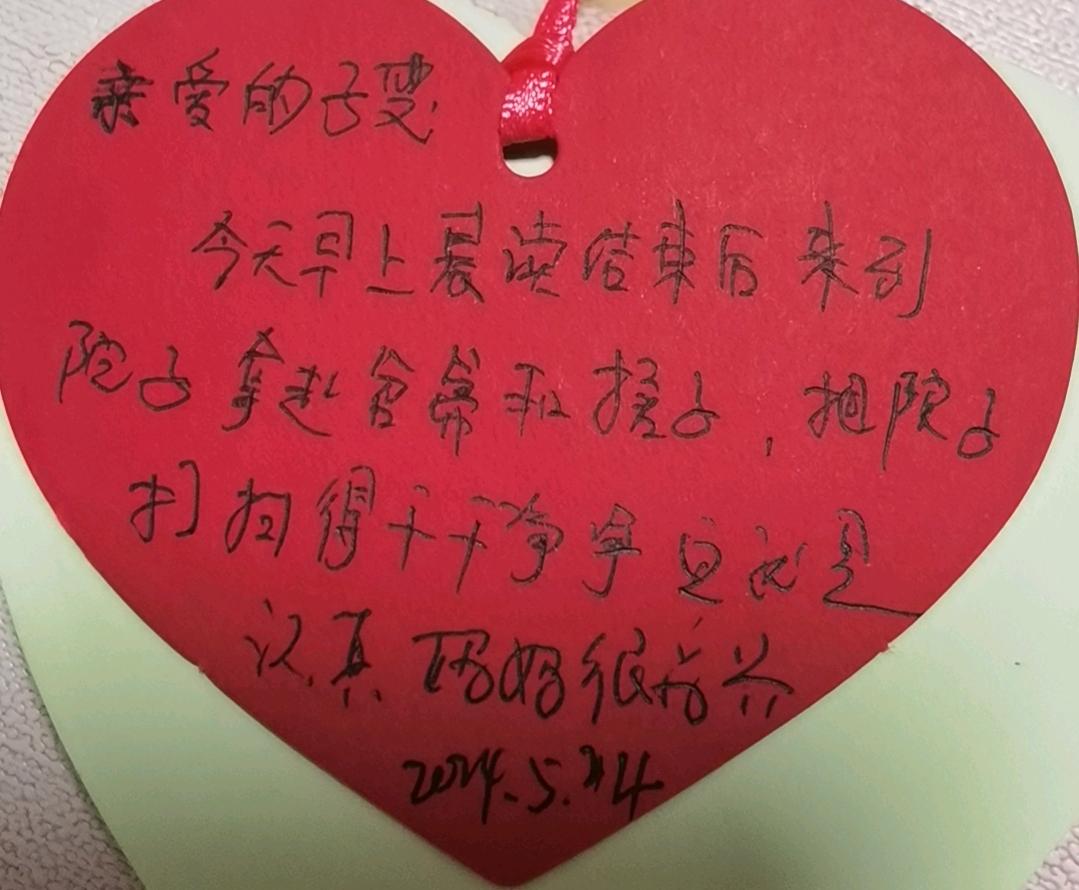 亲爱的子雯
今天早上晨读结束后来到
院子拿起笤帚和搓子，把院子
打扫得干干净净这就是
认真 妈妈很高兴
2024.5.24